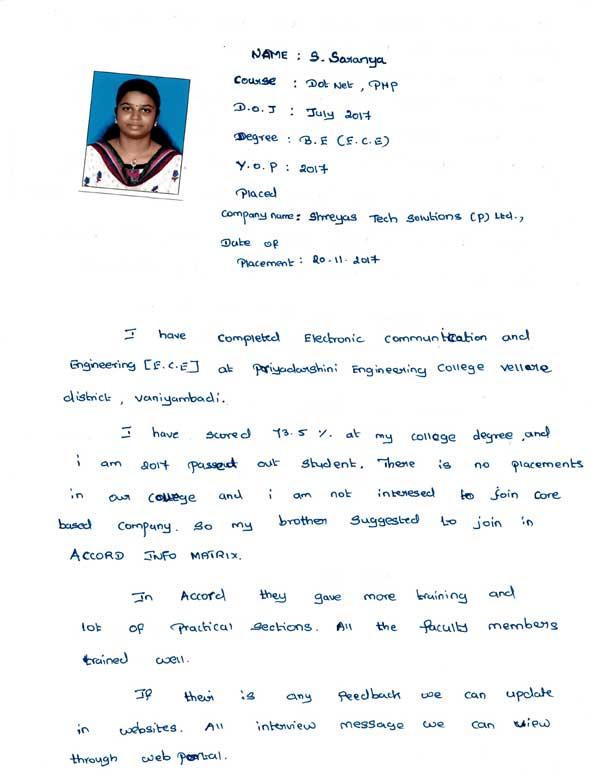 NAME : S. Saranya
Course : Dot Net , PHP
D.O.J : July 2017
Degree : B.E (E.C.E)
Y.O.P : 2017
Placed
Company name : Shreyas Tech Solutions (P) Ltd.,
Date of
Placement : 20.11.2017
I have completed Electronic communication and
Engineering [E.C.E] at Priyadarshini Engineering College vellore
district , vaniyambadi.
I have scored 73.5 % at my college degree ,and
i am 2017 passed out student. There is no placements
in our college and i am not interesed to join core
based company. So my brother suggested to join in
ACCORD INFO MATRIX.
In Accord they gave more training and
lot of practical sections. All the faculty members
trained well.
If their is any feedback we can update
in websites. All interview message we can view
through web portal.